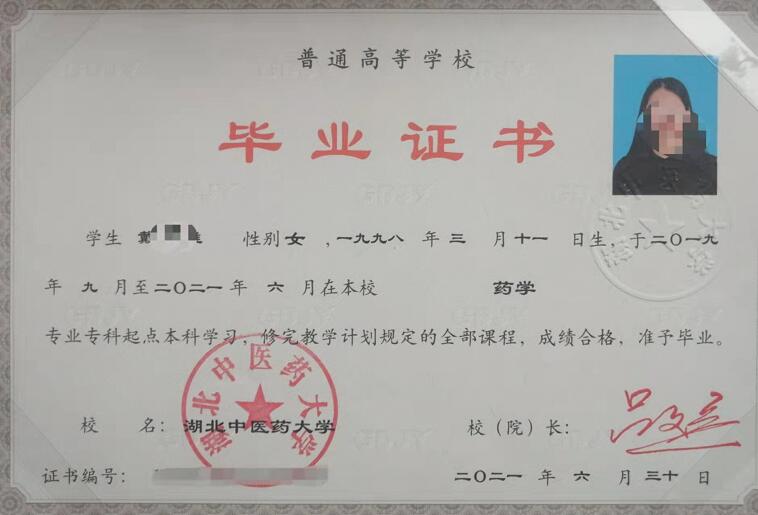 普通高等学校
毕业证书
学生 戴 性别女，一九九八年三月十一日生，于二〇一九
年九月至二〇二一年六月在本校 药学
专业专科起点本科学习，修完教学计划规定的全部课程，成绩合格，准予毕业。
湖北中医药大学
校 名：湖北中医药大学 校（院）长：吕文亮
证书编号： 二〇二一年六月三十日